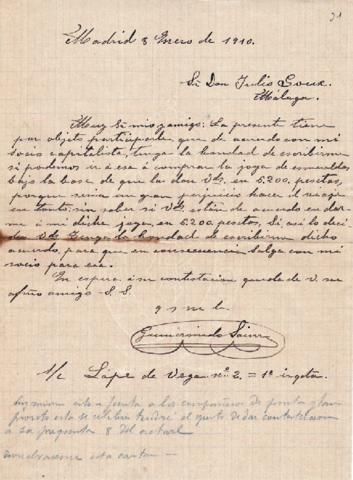 31
Madrid 8 Enero de 1910.
Sr Don Julio Goux.
Málaga.
Muy Sr mio y amigo: La present tiene
por objeto participarle que de acuerdo con mi
socio capitalista, tenga la bondad de escribirme
si podemos ir á esa á comprar la joya de esmeraldas
bajo la base de que la dan Vds. en 5,200 pesetas,
porque seria un gran perjuicio hacer el viage
en tanto, sin saber si Vds. están de acuerdo en darme
á mi dicha joya, en 5.200 pesetas, Si así lo deci
den Vds. tenga la bondad de escribirme dicho
acuerdo para que en consecuencia salga con mi
socio para esa.
En espera á su contestacion queda de V. su
afmo amigo S. S.
q s m b.
Gumersindo
S/c Lópe de Vega nº 2 = 1º izqda.
esta a los compañeros de
pronto esta se el gusto de dar contestacion
a la pregunta 8 del actual
esta carta —